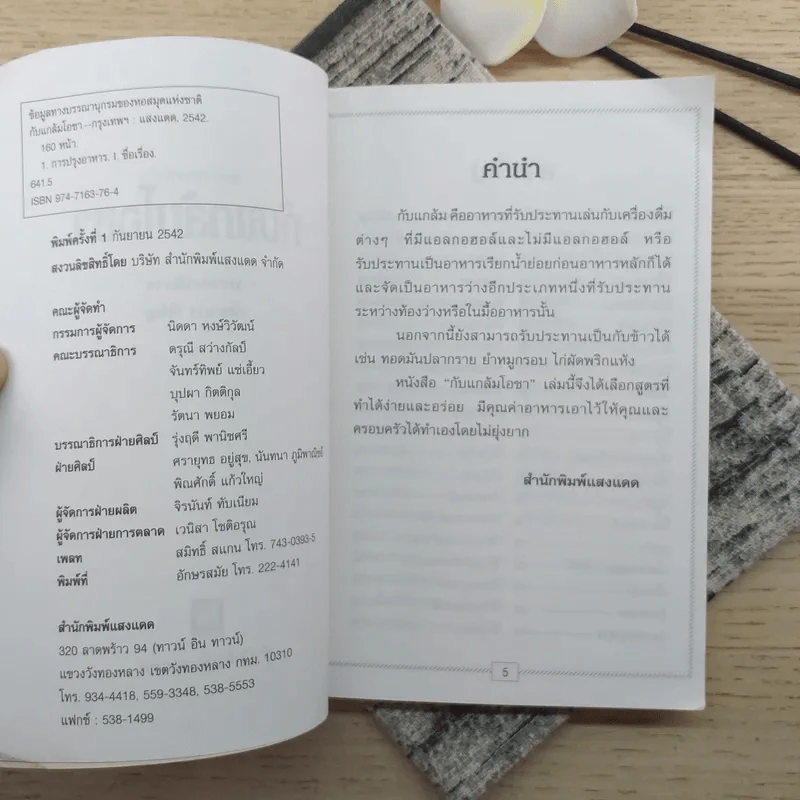 ข้อมูลทางบรรณานุกรมของหอสมุดแห่งชาติ
กับแกล้มโอชา.--กรุงเทพฯ : แสงแดด, 2542.
160 หน้า.
1. การปรุงอาหาร. I. ชื่อเรื่อง.
641.5
ISBN 974-7163-76-4
พิมพ์ครั้งที่ 1 กันยายน 2542
สงวนลิขสิทธิ์โดย บริษัท สำนักพิมพ์แสงแดด จำกัด
คณะผู้จัดทำ
กรรมการผู้จัดการ นิดดา หงษ์วิวัฒน์
คณะบรรณาธิการ ดรุณี สว่างกัลป์
จันทร์ทิพย์ แซ่เอี้ยว
บุปผา กิตติกุล
รัตนา พยอม
บรรณาธิการฝ่ายศิลป์ รุ่งฤดี พานิชศรี
ฝ่ายศิลป์ ศรายุทธ อยู่สุข, นันทนา ภูมิพาณิชย์
พิณศักดิ์ แก้วใหญ่
ผู้จัดการฝ่ายผลิต จิรนันท์ ทับเนียม
ผู้จัดการฝ่ายการตลาด เวนิสา โชติอรุณ
เพลท สมิทธิ์ สแกน โทร. 743-0393-5
พิมพ์ที่ อักษรสมัย โทร. 222-4141
สำนักพิมพ์แสงแดด
320 ลาดพร้าว 94 (ทาวน์ อิน ทาวน์)
แขวงวังทองหลาง เขตวังทองหลาง กทม. 10310
โทร. 934-4418, 559-3348, 538-5553
แฟกซ์ : 538-1499
คำนำ
กับแกล้ม คืออาหารที่รับประทานเล่นกับเครื่องดื่ม
ต่างๆ ที่มีแอลกอฮอล์และไม่มีแอลกอฮอล์ หรือ
รับประทานเป็นอาหารเรียกน้ำย่อยก่อนอาหารหลักก็ได้
และจัดเป็นอาหารว่างอีกประเภทหนึ่งที่รับประทาน
ระหว่างท้องว่างหรือในมื้ออาหารนั้น
นอกจากนี้ยังสามารถรับประทานเป็นกับข้าวได้
เช่น ทอดมันปลากราย ยำหมูกรอบ ไก่ผัดพริกแห้ง
หนังสือ “กับแกล้มโอชา” เล่มนี้จึงได้เลือกสูตรที่
ทำได้ง่ายและอร่อย มีคุณค่าอาหารเอาไว้ให้คุณและ
ครอบครัวได้ทำเองโดยไม่ยุ่งยาก
สำนักพิมพ์แสงแดด
5